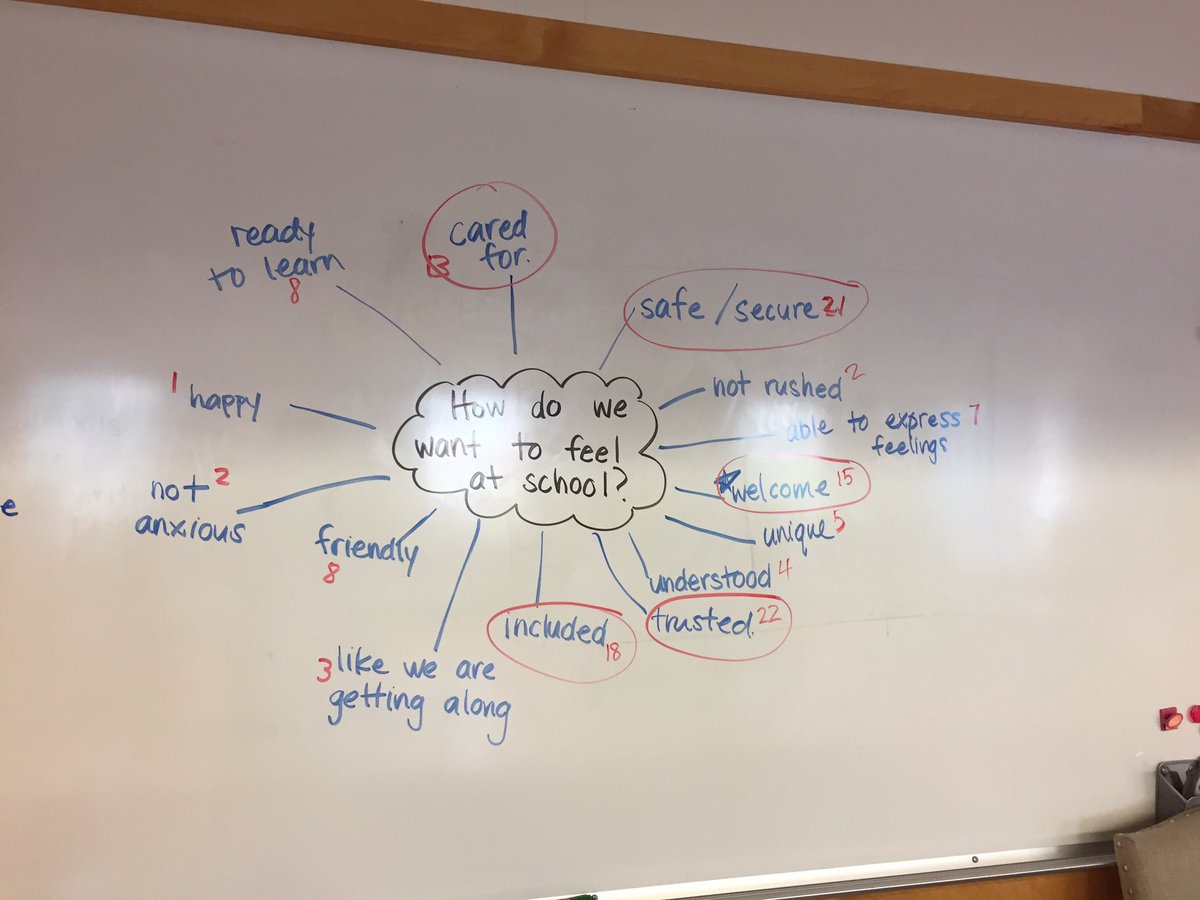 ready
to learn
8
cared
13 for.
safe/secure 21
How do we
want to feel
at school?
not rushed 2
able to express 7
feelings
welcome 15
unique 5
understood 4
trusted. 22
included 18
3 like we are
getting along
friendly
8
not 2
anxious
1 happy
e